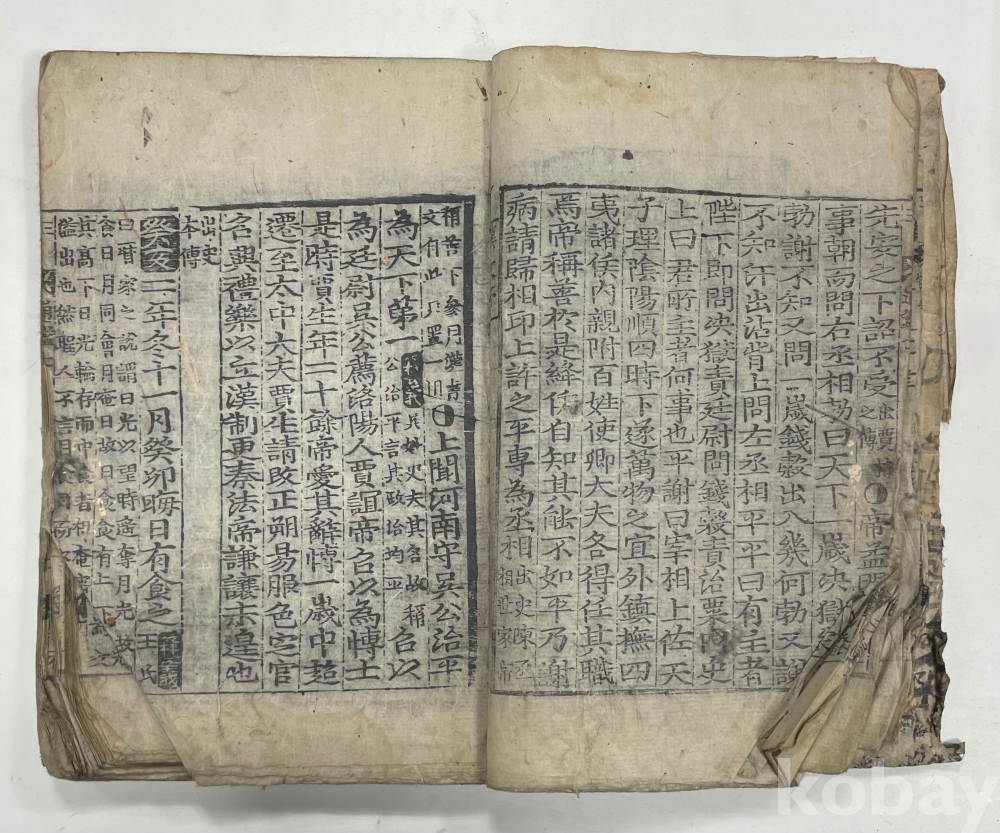 先安之下詔不受
事朝而問右丞相勃曰天下一歲決獄
勃謝不知又問一歲錢穀出入幾何勃又謝
不知汗出沾背上問左丞相平平曰有主者
陛下即問決獄責廷尉問錢穀責治粟內史
上曰君所主者何事也平謝曰宰相上佐天
子理陰陽順四時下遂萬物之宜外鎮撫四
夷諸侯內親附百姓使卿大夫各得任其職
焉帝稱善於是絳侯自知其能不如平乃謝
病請歸相印上許之平專為丞相 出史陳丞相世家
上聞河南守吳公治平
為天下第一 公治平言其政治均平 召以
為廷尉吳公薦洛陽人賈誼帝召以為博士
是時賈生年二十餘帝愛其辭博一歲中超
遷至太中大夫賈生請改正朔易服色定官
名興禮樂以立漢制更秦法帝謙讓未遑也
出史本傳
癸亥二年冬十一月癸卯晦日有食之 王氏
曰曆家之說謂日光以望時遙奪月光
食日月同會月奄日故日食食有上下
其高下日光輪存而中食者相奄
kobay